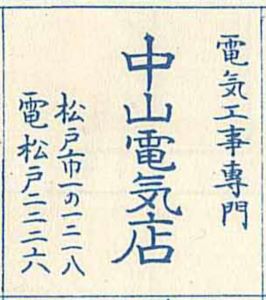 電気工事専門
中山電気店
松戸市一の一二一八
電松戸二二二六